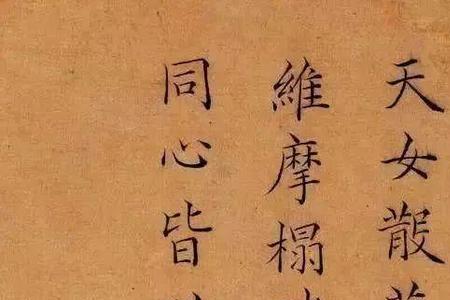 天女散
維摩榻
同心皆